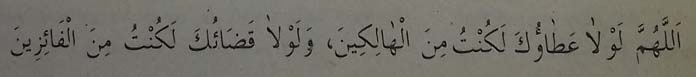 اَللّٰهُمَّ لَوْلاٰ عَطٰاؤُكَ لَكُنْتُ مِنَ الْهٰالِكِينَ، وَلَوْلاٰ قَضَائُكَ لَكُنْتُ مِنَ الْفَائِزِينَ